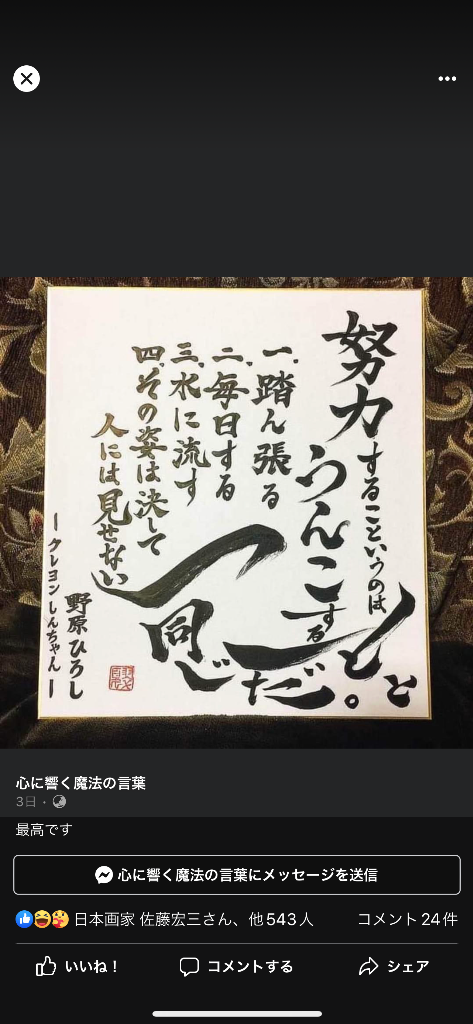 努力するこというのは
うんこすることと
同じだ。
一、踏ん張る
二、毎日する
三、水に流す
四、その姿は決して
人には見せない
野原ひろし
ークレヨンしんちゃんー
心に響く魔法の言葉
3日・
最高です
心に響く魔法の言葉にメッセージを送信
日本画家 佐藤宏三さん、他543人 コメント24件
いいね! コメントする シェア